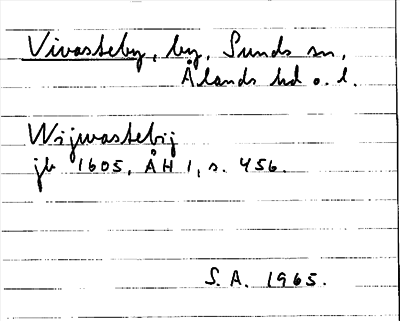 Vivasteby, by, Sunds sn,
Ålands hd o. l.
Wijwastebij
jb 1605, ÅH 1, s. 456.
S. A. 1965.